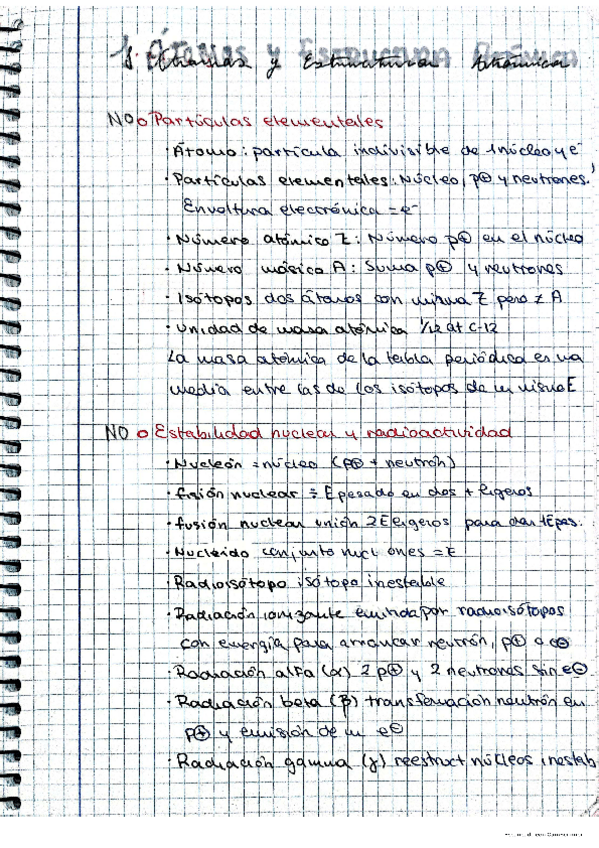 1. Átomos y Estructura Atómica
NO o Partículas elementales
· Átomo: partícula indivisible de 1 núcleo y e⁻
· Partículas elementales: Núcleo, p⊕ y neutrones.
Envoltura electrónica = e⁻
· Número atómico Z: Número p⊕ en el núcleo
· Número másico A: Suma p⊕ y neutrones
· Isótopos dos átomos con misma Z pero ≠ A
· Unidad de masa atómica 1/12 at C-12
La masa atómica de la tabla periódica es una
media entre las de los isótopos de un mismo E
NO o Estabilidad nuclear y radioactividad
· Nucleón = núcleo (p⊕ + neutrón)
· fisión nuclear ÷ E pesado en dos + ligeros
· fusión nuclear unión 2 E ligeros para dar 1 E pes.
· Nucleido conjunto nucl ones = E
· Radioisótopo isótopo inestable
· Radiación ionizante emitida por radioisótopos
con energía para arrancar neutrón, p⊕ o e⊖
· Radiación alfa (α) 2 p⊕ y 2 neutrones sin e⊖
· Radiación beta (β) transformación neutrón en
p⊕ y emisión de un e⊖
· Radiación gamma (γ) reestruct núcleos inestab